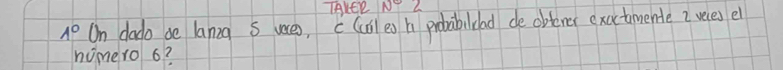 TALLER Nº 2
1º Un dado se lanza 5 veces, ¿Cuál es la probabilidad de obtener exactamente 2 veces el
número 6?